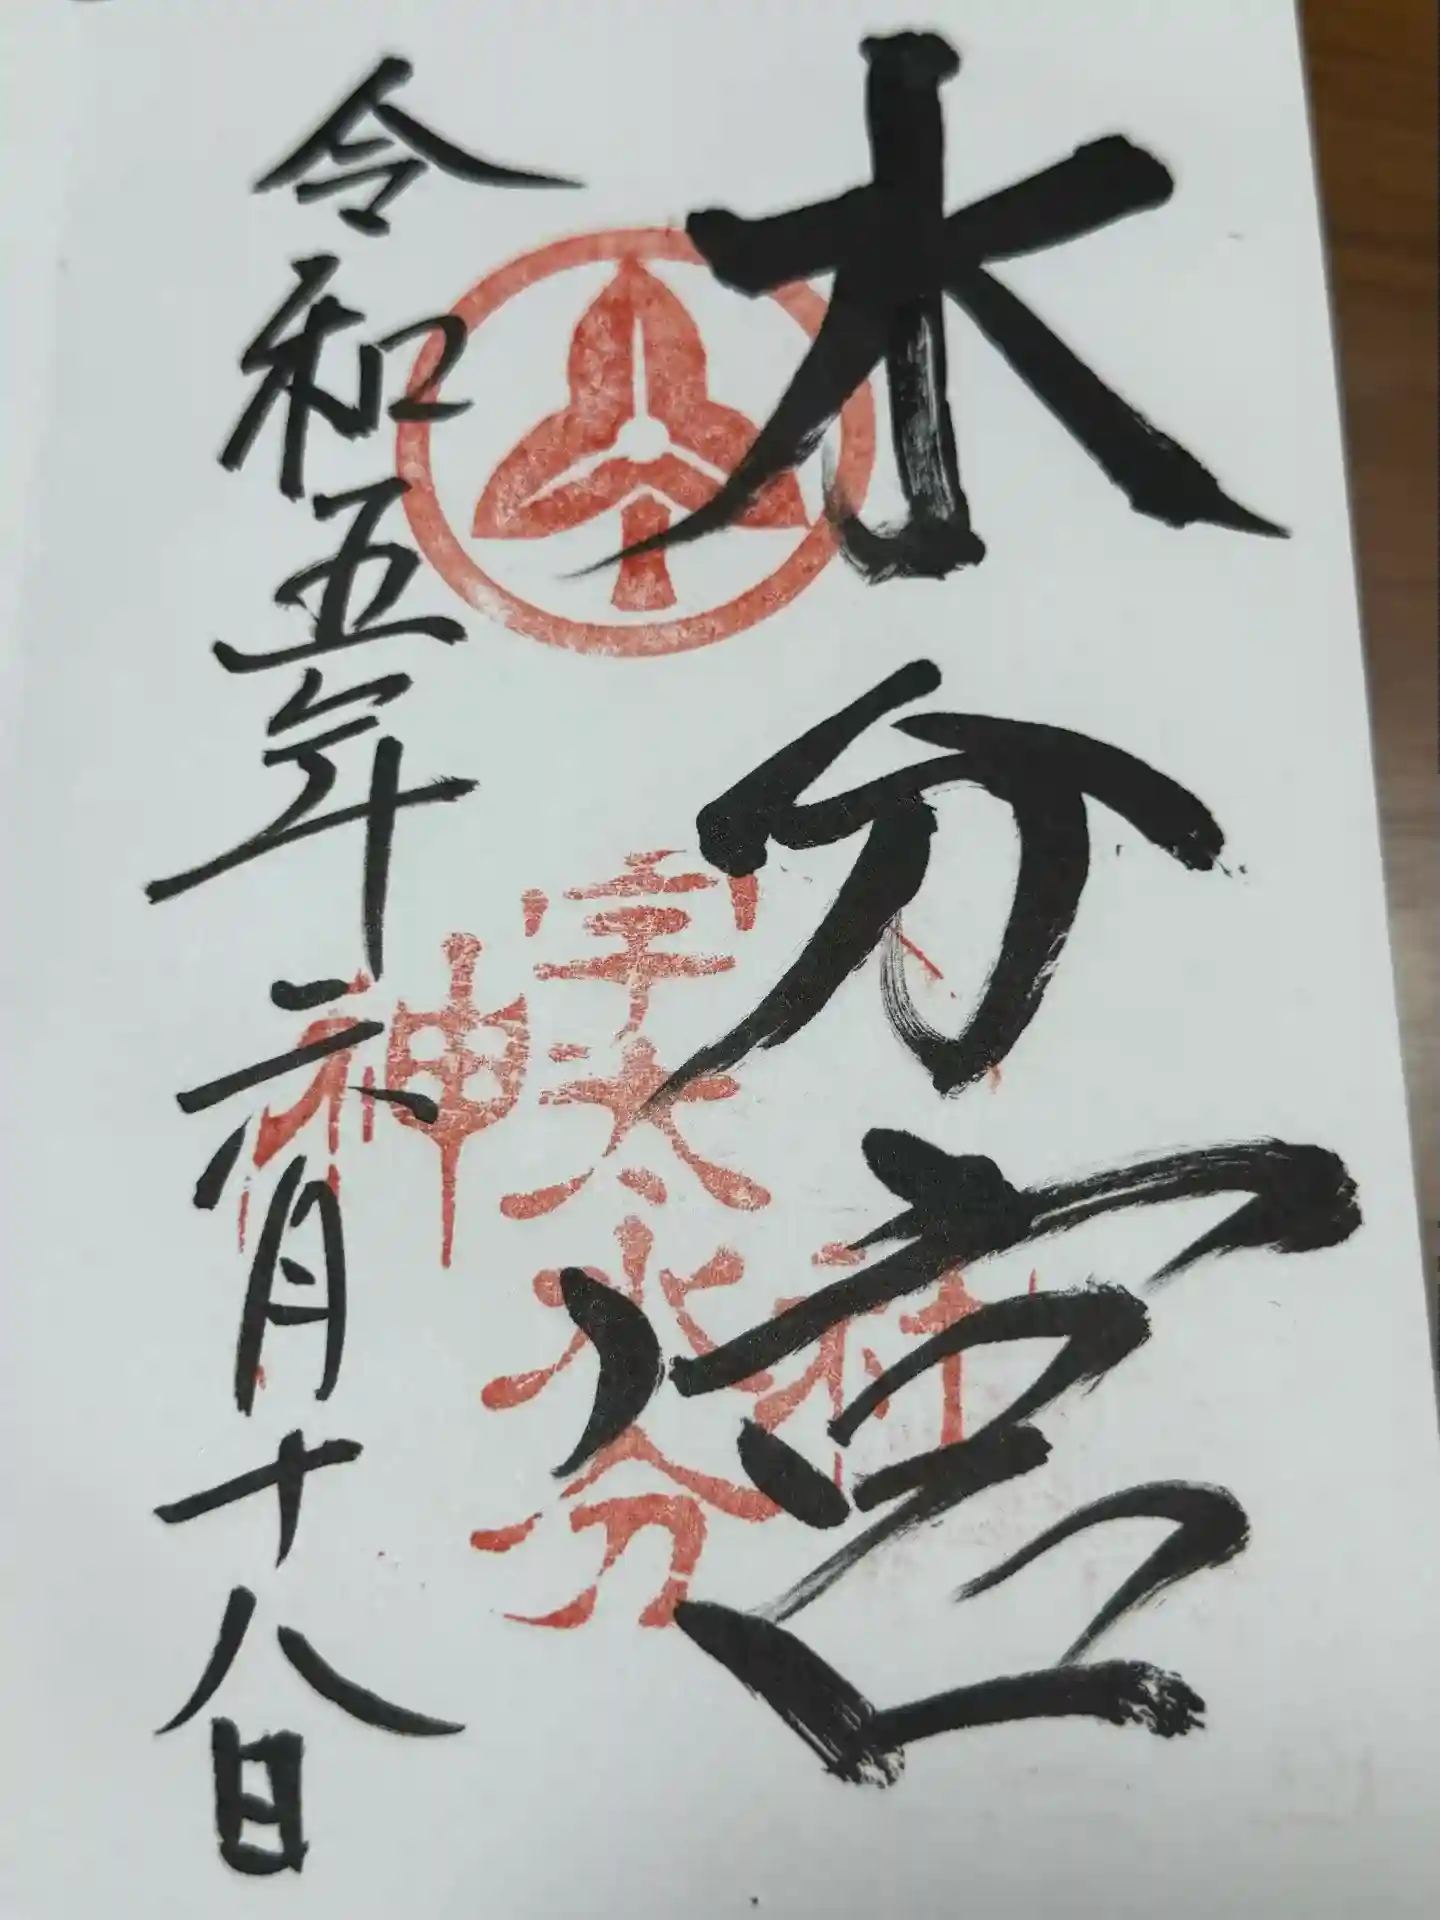 水分宮
宇太水分
神社
令和五年六月十八日